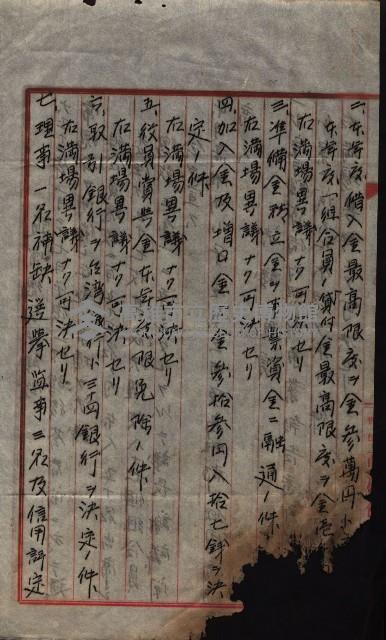 二、本年度借入金最高限度ヲ金參萬円ト
本年度一組合員ノ貸付金最高限度ヲ金壱
右満場異議ナク可決セリ
三、準備金積立金ヲ事業資金ニ融通ノ件
右満場異議ナク可決セリ
四、加入金及増口金ヲ金參拾參円八拾七銭ヲ決
定ノ件
右満場異議ナク可決セリ
五、役員賞與金本年度限免除ノ件
右満場異議ナク可決セリ
六、取引銀行ヲ台湾銀行ト三十四銀行ヲ決定ノ件
右満場異議ナク可決セリ
七、理事一名補缺選挙監事三名及信用評定